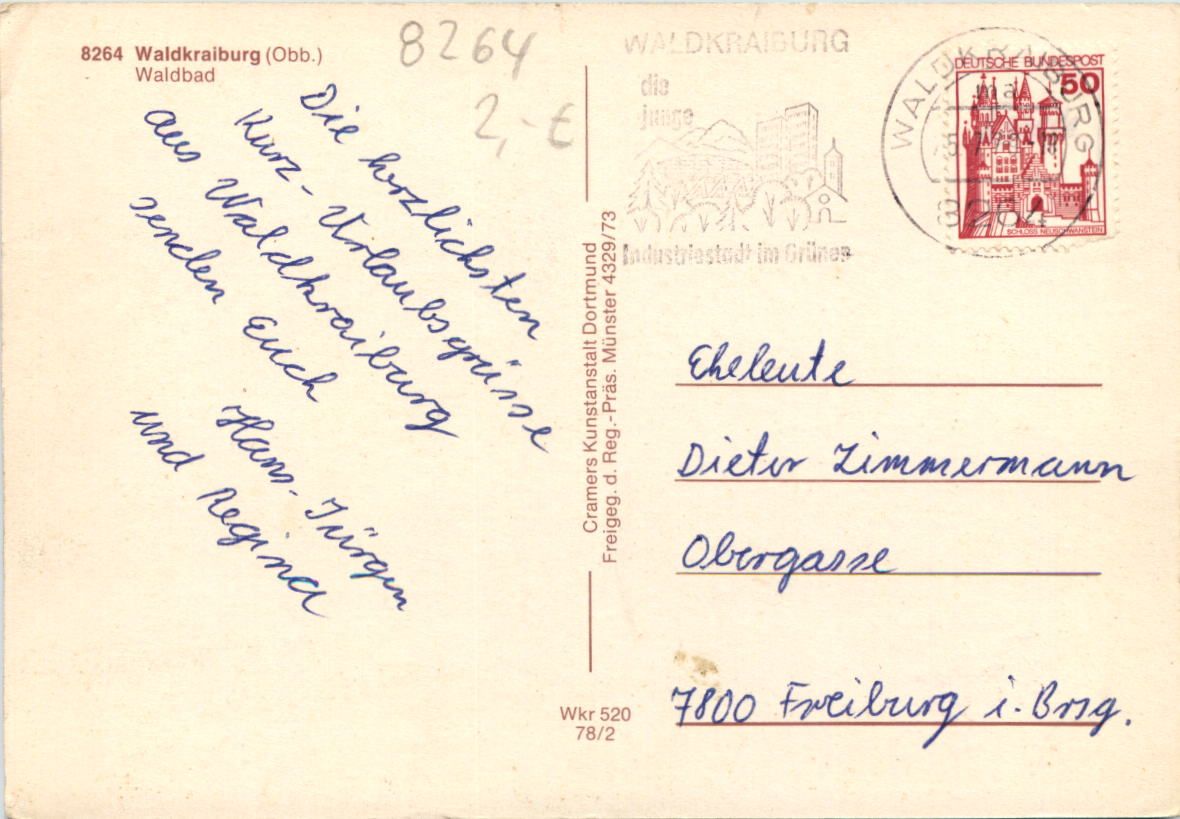 8264 Waldkraiburg (Obb.)
Waldbad
8264
2,- €
Die herzlichsten
Kurz-Urlaubsgrüsse
aus Waldkraiburg
senden Euch
Hans-Jürgen
und Regina
Cramers Kunstanstalt Dortmund
Freigeg. d. Reg.-Präs. Münster 4329/73
Wkr 520
78/2
WALDKRAIBURG
die
junge
Industriestadt im Grünen
WALDKRAIBURG
ma
8264
DEUTSCHE BUNDESPOST
50
SCHLOSS NEUSCHWANSTEIN
Eheleute
Dieter Zimmermann
Obergasse
7800 Freiburg i. Brsg.